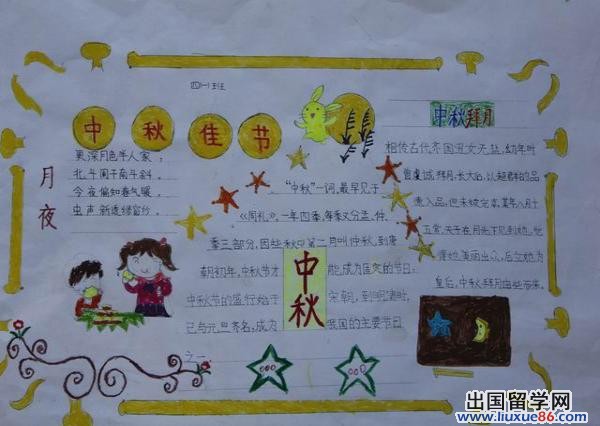 四(一)班
中秋佳节
月夜
更深月色半人家,
北斗阑干南斗斜。
今夜偏知春气暖,
虫声新透绿窗纱。
"中秋"一词,最早见于
《周礼》,一年四季,每季又分孟、仲、
季三部分,因此秋中第二月叫仲秋,到唐
朝初年,中秋节才能成为固定的节日。
中秋节的盛行始于宋朝,到明清时,
已与元旦齐名,成为我国的主要节日
之一
中秋
中秋拜月
相传古代齐国丑女无盐,幼年时
曾虔诚拜月,长大后,以超群的品
德入品,但未被宠幸,某年八月十
五赏,天子在月光下见到她,觉
得她美丽出众,后立她为
皇后,中秋拜月由此带来。
出国留学网
www.liuxue86.com